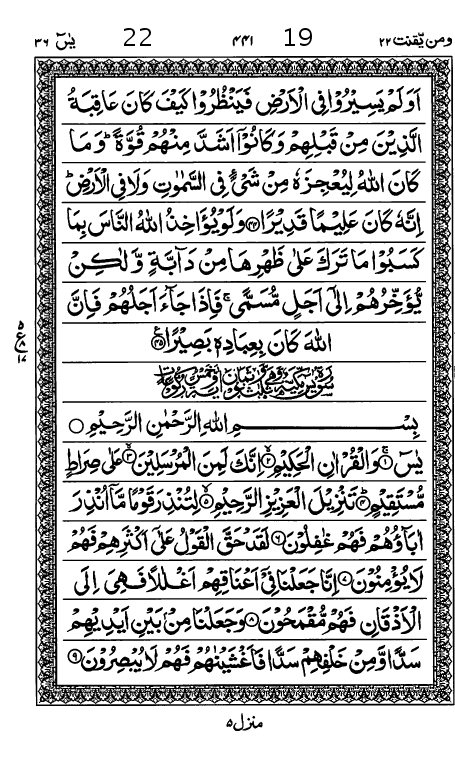 ومن یقنت ۲۲ 19 ۴۴۱ 22 یٰسٓ ۳۶
اَوَلَمۡ يَسِيۡرُوۡا فِى الۡاَرۡضِ فَيَنۡظُرُوۡا كَيۡفَ كَانَ عَاقِبَةُ
الَّذِيۡنَ مِنۡ قَبۡلِهِمۡ وَكَانُوۡۤا اَشَدَّ مِنۡهُمۡ قُوَّةً ؕ وَمَا
كَانَ اللّٰهُ لِيُعۡجِزَهٗ مِنۡ شَىۡءٍ فِى السَّمٰوٰتِ وَلَا فِى الۡاَرۡضِ ؕ
اِنَّهٗ كَانَ عَلِيۡمًا قَدِيۡرًا ﴿۴۴﴾ وَلَوۡ يُؤَاخِذُ اللّٰهُ النَّاسَ بِمَا
كَسَبُوۡا مَا تَرَكَ عَلٰى ظَهۡرِهَا مِنۡ دَآبَّةٍ وَّلٰكِنۡ
يُّؤَخِّرُهُمۡ اِلٰٓى اَجَلٍ مُّسَمًّى ۚ فَاِذَا جَآءَ اَجَلُهُمۡ فَاِنَّ
اللّٰهَ كَانَ بِعِبَادِهٖ بَصِيۡرًا ﴿۴۵﴾
بِسۡمِ اللّٰهِ الرَّحۡمٰنِ الرَّحِيۡمِ
يٰسٓ ﴿۱﴾ وَالۡقُرۡاٰنِ الۡحَكِيۡمِ ﴿۲﴾ اِنَّكَ لَمِنَ الۡمُرۡسَلِيۡنَ ﴿۳﴾ عَلٰى صِرَاطٍ
مُّسۡتَقِيۡمٍ ﴿۴﴾ تَنۡزِيۡلَ الۡعَزِيۡزِ الرَّحِيۡمِ ﴿۵﴾ لِتُنۡذِرَ قَوۡمًا مَّاۤ اُنۡذِرَ
اٰبَآؤُهُمۡ فَهُمۡ غٰفِلُوۡنَ ﴿۶﴾ لَقَدۡ حَقَّ الۡقَوۡلُ عَلٰٓى اَكۡثَرِهِمۡ فَهُمۡ
لَا يُؤۡمِنُوۡنَ ﴿۷﴾ اِنَّا جَعَلۡنَا فِىۡۤ اَعۡنَاقِهِمۡ اَغۡلٰلًا فَهِىَ اِلَى
الۡاَذۡقَانِ فَهُمۡ مُّقۡمَحُوۡنَ ﴿۸﴾ وَجَعَلۡنَا مِنۡۢ بَيۡنِ اَيۡدِيۡهِمۡ
سَدًّا وَّمِنۡ خَلۡفِهِمۡ سَدًّا فَاَغۡشَيۡنٰهُمۡ فَهُمۡ لَا يُبۡصِرُوۡنَ ﴿۹﴾
منزل ۵